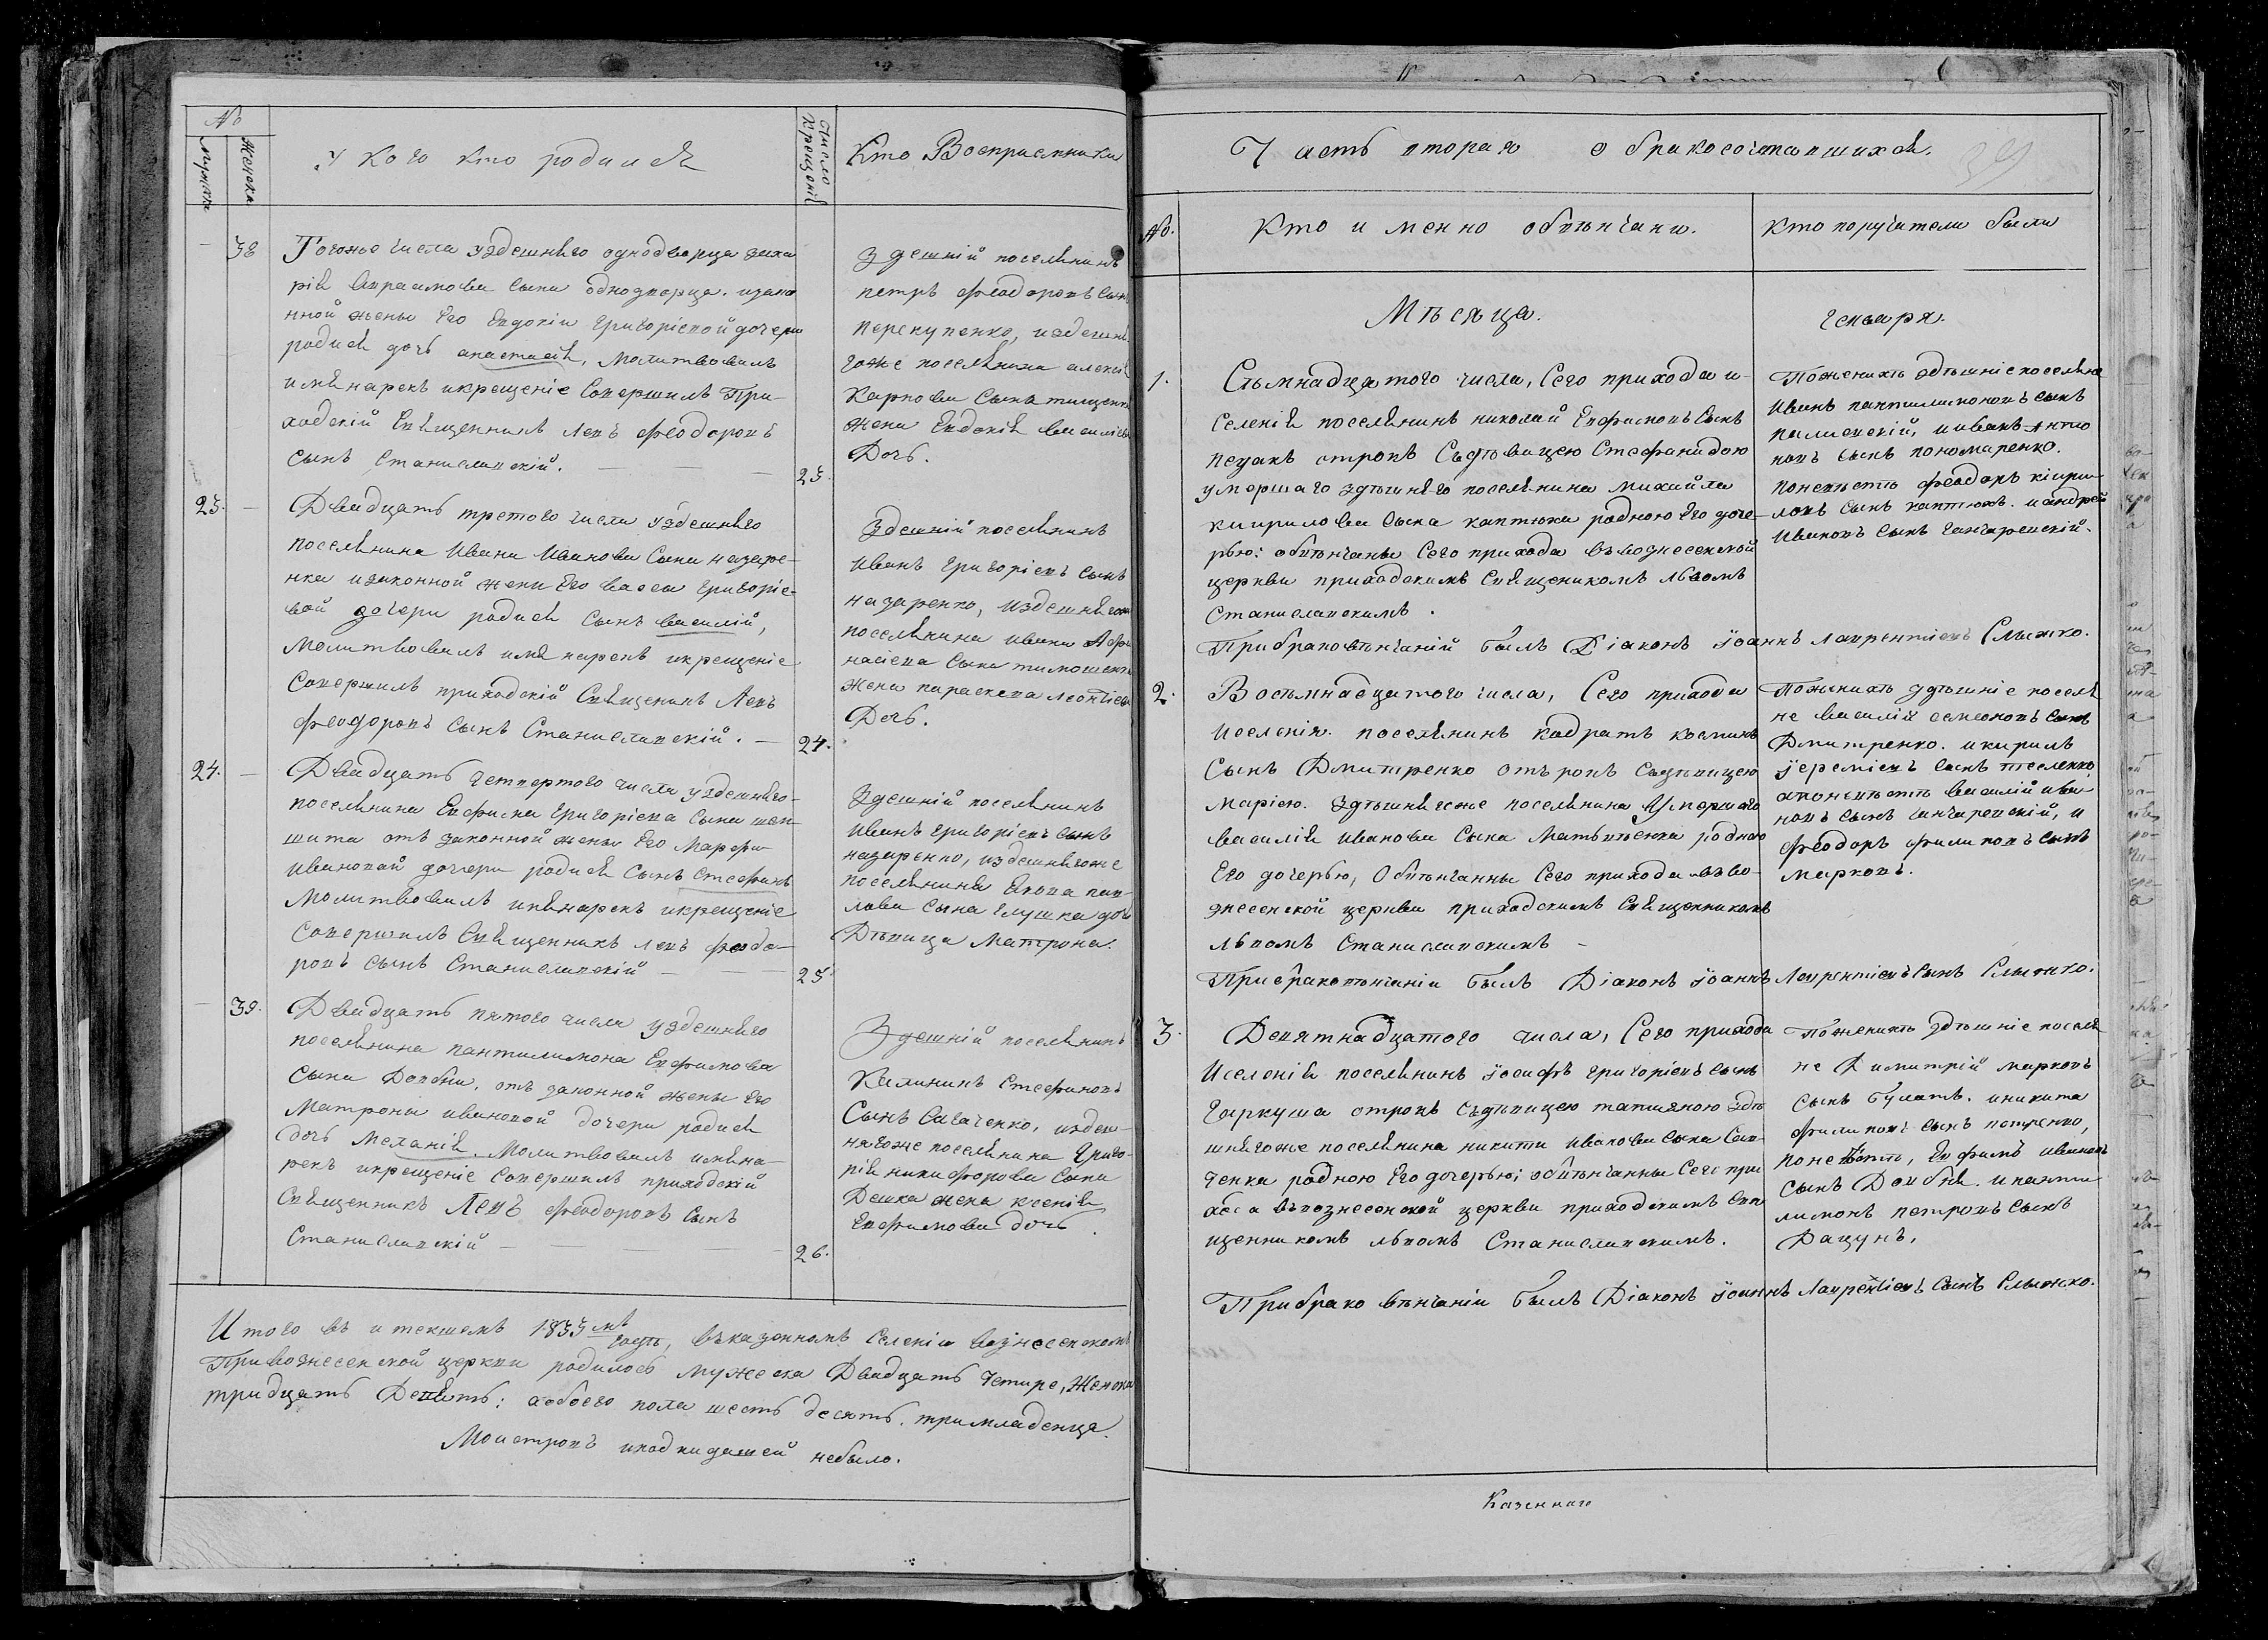 №
мужска
женска
У кого кто родился
Число
Крещенія
Кто Восприемники
38
Тогожъ числа уздешняго однодворца заха
рія Авраамова сына однодворца. изако
нной жены Его Евдокіи григоріевой дочери
родися дочь анастасія, молитвовалъ
имя нарекъ икрещеніе совершилъ При-
ходскій Священникъ левъ феодоровъ
сынъ Станиславскій.
23.
Здешній поселянинъ
петръ феодоровъ сынъ
перекупенко, издешня
гоже поселянина алексія
Карпова сына тищенка
жена Евдокія василіева
Дочь.
23.
Двадцать третого числа уздешняго
поселянина Ивана Иванова сына назаре-
нка изаконной жены Его вассы григоріе-
вой дочери родися сынъ василій,
молитвовалъ имя нарекъ икрещеніе
совершилъ приходскій Священикъ Левъ
феодоровъ сынъ Станиславскій.
24.
Здешній поселянинъ
Иванъ григоріевъ сынъ
назаренко, издешнягоже
поселянина ивана Афа
насіева сына тимошенка
жена параскева леонтіева
Дочь.
24.
Двадцать четвертого числа уздешняго
поселянина Евфима григоріева сына
шита отъ законной жены Его Марфы
ивановой дочери родися сынъ стефанъ
молитвовалъ имянарекъ икрещеніе
совершилъ Священникъ левъ феодо-
ровъ сынъ Станиславскій
25.
Здешній поселянинъ
Иванъ григоріевъ сынъ
назаренко, издешнягоже
поселянина Якова пав-
лова сына глушка дочь
Дѣвица Матрона.
39.
Двадцать пятого числа уздешняго
поселянина пантилимона Евфимова
сына Довбни, отъ законной жены Его
Матроны ивановой дочери родися
дочь меланія. Молитвовалъ имяна-
рекъ икрещеніе совершилъ приходскій
Священникъ Левъ феодоровъ сынъ
Станиславскій
26.
Здешній поселянинъ
Калиникъ Стефановъ
Сынъ Сагаченко, издеш-
нягоже поселянина григо-
рія никифорова сына
Дешка жена ксенія
Евфимова дочь
Итого въ итекшемъ 1833мъ годѣ, въказенномъ селеніи вознесенскомъ
Привознесенской церкви родилось мужеска Двадцать четыре, Женска
тридцать Девять: аобоего пола шесть десятъ тримладенца.
Монстровъ иподкидышей небыло.
Часть вторая о бракосочетавшихся.
39
№.
Кто именно обвѣнчани.
Кто поручители были
Мѣсяца.
генваря.
1.
Сѣмнадцатого числа, Сего прихода и
Селенія поселянинъ николай Евфимовъ сынъ
пецакъ отрокъ Съдѣвицею Стефанидою
умершаго здѣшнего поселянина михайла
кирилова сына каптюка родною его доче-
рью: обвѣнчаны Сего прихода въвознесенской
церкви приходскимъ Священикомъ львомъ
Станиславскимъ.
Поженихъ здѣшніе поселяне
Иванъ пантилимоновъ сынъ
палиевскій, ииванъ Анто
новъ сынъ пономаренко.
Поневѣстѣ феодоръ кіири-
ловъ сынъ каптюхъ. иандрей
Ивановъ сынъ ганчаревскій.
Прибраковѣнчаній былъ Діаконъ іоаннъ лаврентіевъ Слынко.
2.
Восѣмнадцатого числа, Сего прихода
Иселенія поселянинъ кадратъ косминъ
сынъ Дмитренко отъ рокъ съдѣвицею
маріею. здѣшнягоже поселянина умершаго
василія иванова сына Матвѣенка родною
Его дочерью, Обвѣнчанны Сего прихода въво-
знесенской церкви приходскимъ Священникомъ
львомъ Станиславскимъ
Поженихѣ здѣшніе поселя
не василій семеоновъ сынъ
Дмитренко. икирилъ
іереміевъ сынъ тесленко
апоневѣстѣ василій ива
новъ сынъ ганчаревскій, и
феодоръ филиповъ сынъ
марковъ.
Прибраковѣнчаніи былъ Діаконъ іоаннъ Лаврентіевъ сынъ Слынко.
3.
Девятнадцатого числа, Сего прихода
Иселенія поселянинъ іосифъ григоріевъ сынъ
гаркуша отрокъ съдѣвицею татияною здѣ
шнягоже поселянина никити иванова сына Сав-
ченка родною Его дочерью; обвѣнчанны Сего при
хода въвознесенской церкви приходскимъ свя
щенникомъ львомъ Станиславскимъ.
Поженихѣ здѣшніе поселя
не Димитрій марковъ
сынъ булатъ. иникита
филиповъ сынъ петренко,
поневѣстѣ, Евфимъ ивановъ
сынъ Довбня. ипанти
лимонъ петровъ сынъ
Дацунъ.
Прибрако вѣнчаніи былъ Діаконъ іоаннъ Лаврентіевъ сынъ Слынко.
Казеннаго